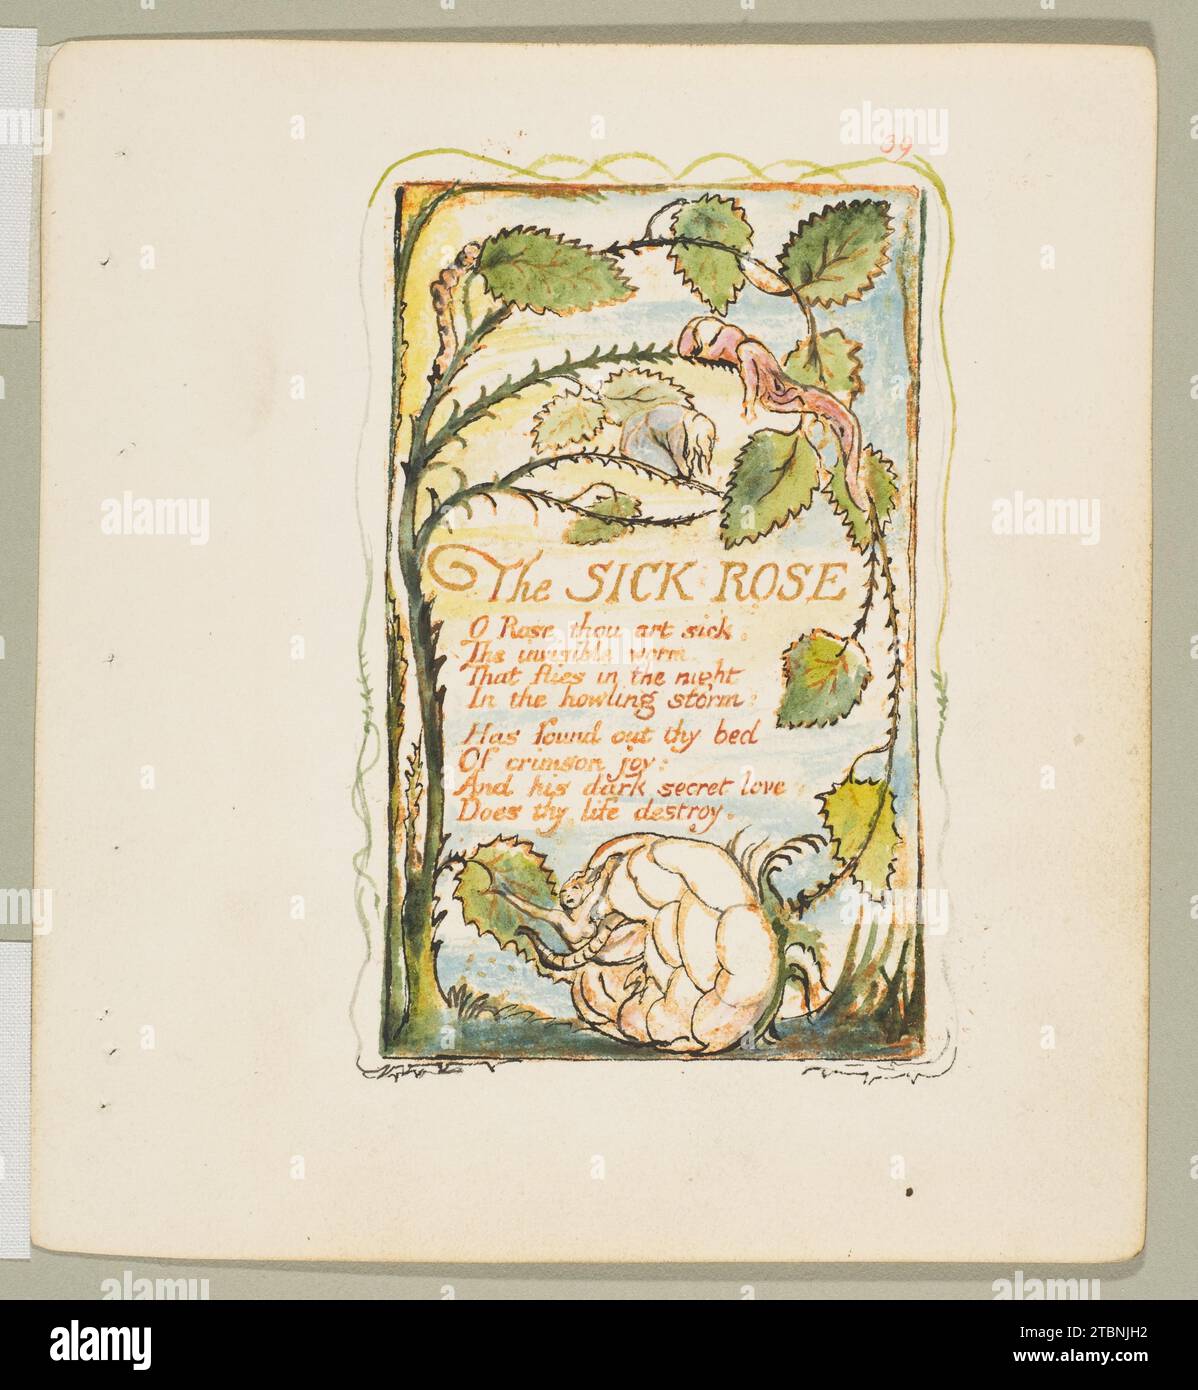 39
The SICK ROSE
O Rose thou art sick.
The invisible worm.
That flies in the night
In the howling storm:
Has found out thy bed
Of crimson joy:
And his dark secret love
Does thy life destroy.
alamy
alamy
alamy
alamy
alamy
alamy
alamy
alamy
Image ID: 2TBNJH2
www.alamy.com